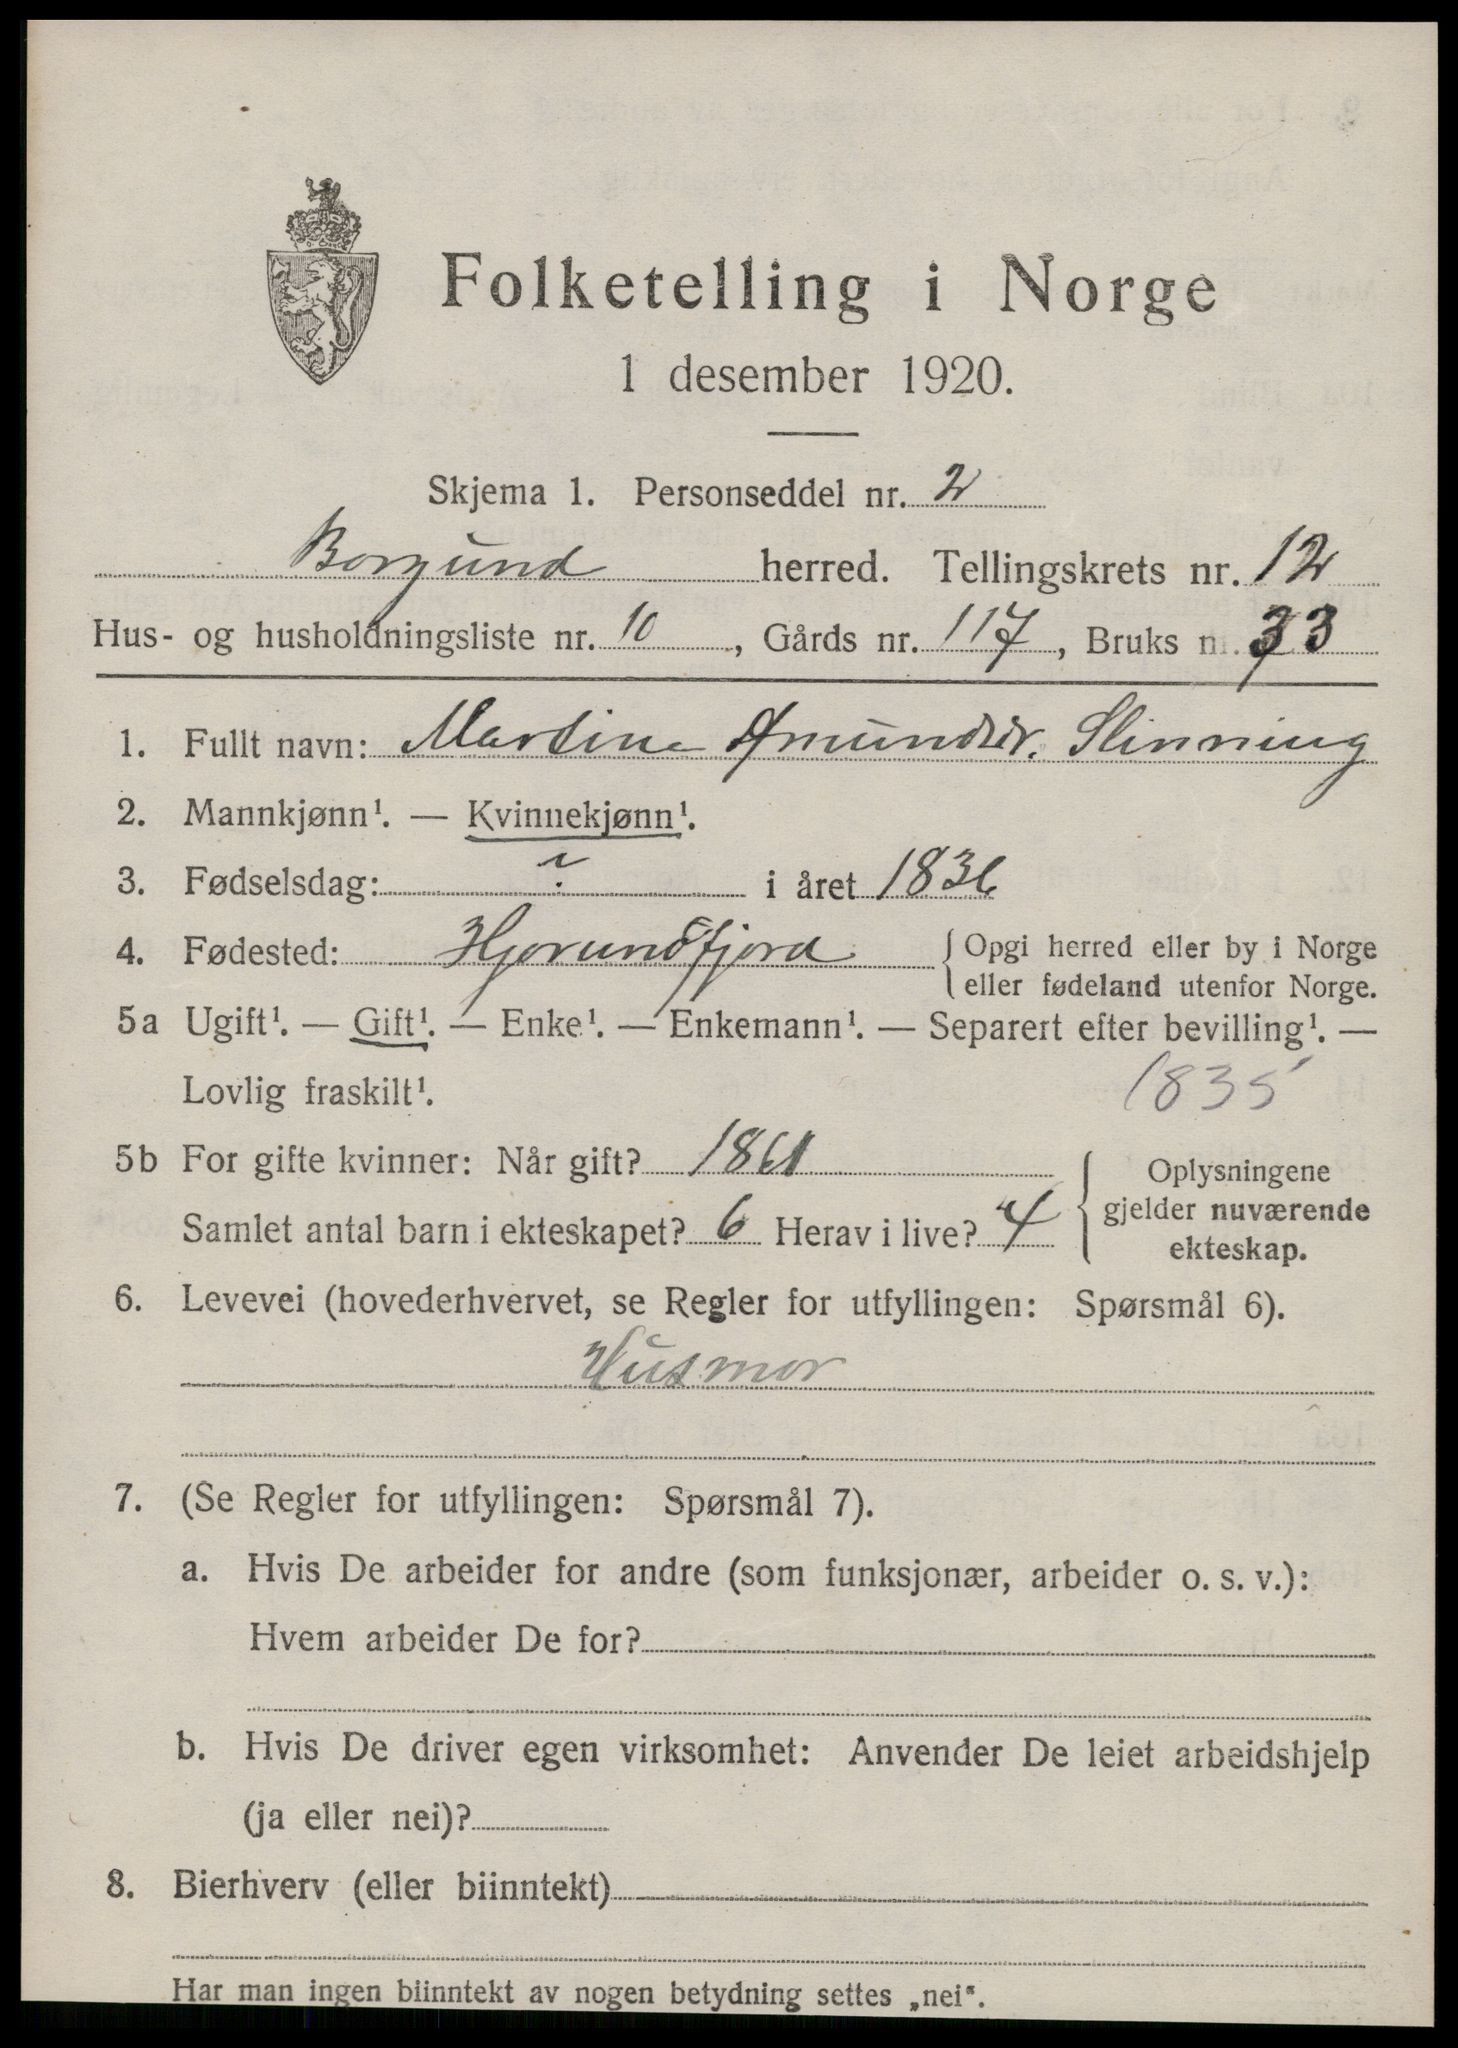 Folketelling i Norge
1 desember 1920.
Skjema 1. Personseddel nr. 2
Borgund herred. Tellingskrets nr. 12
Hus- og husholdningsliste nr. 10, Gårds nr. 117, Bruks nr. 33
1. Fullt navn: Martine Amundsdr. Slinning
2. Mannkjønn¹. — Kvinnekjønn¹.
3. Fødselsdag: ? i året 1836
4. Fødested: Hjørundfjord { Opgi herred eller by i Norge
eller fødeland utenfor Norge.
5a Ugift¹. — Gift¹. — Enke¹. — Enkemann¹. — Separert efter bevilling¹. —
Lovlig fraskilt¹. 1835
5b For gifte kvinner: Når gift? 1861
Samlet antal barn i ekteskapet? 6 Herav i live? 4
{ Oplysningene
gjelder nuværende
ekteskap.
6. Levevei (hovederhvervet, se Regler for utfyllingen: Spørsmål 6).
Husmor
7. (Se Regler for utfyllingen: Spørsmål 7).
a. Hvis De arbeider for andre (som funksjonær, arbeider o. s. v.):
Hvem arbeider De for?
b. Hvis De driver egen virksomhet: Anvender De leiet arbeidshjelp
(ja eller nei)?
8. Bierhverv (eller biinntekt)
Har man ingen biinntekt av nogen betydning settes „nei“.